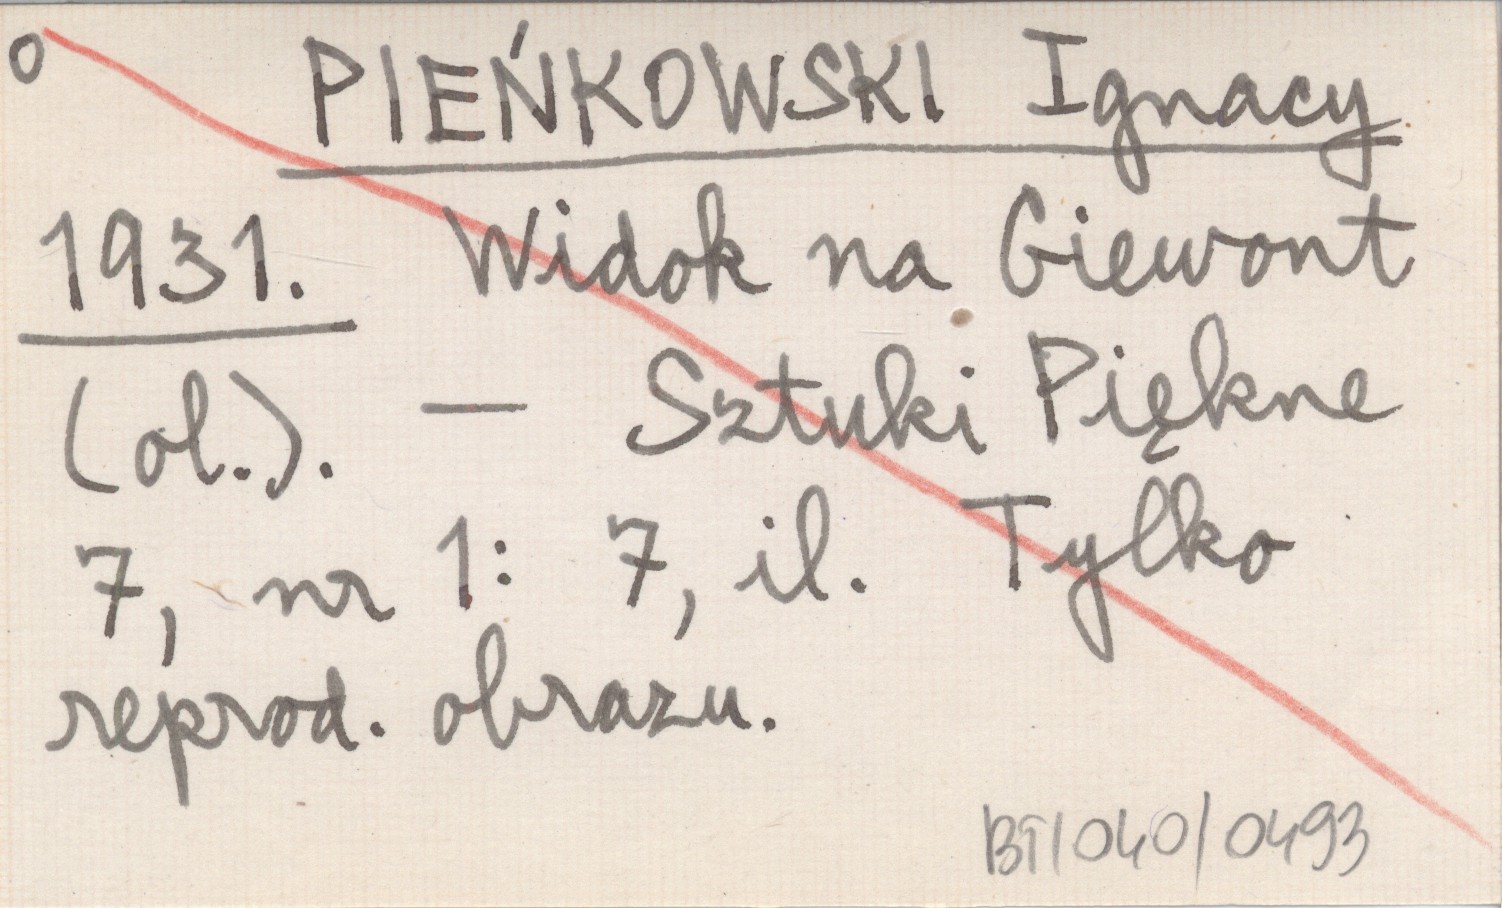 o
PIEŃKOWSKI Ignacy
1931. Widok na Giewont
(ol.). — Sztuki Piękne
7, nr 1: 7, il. Tylko
reprod. obrazu.
BT/040/0493